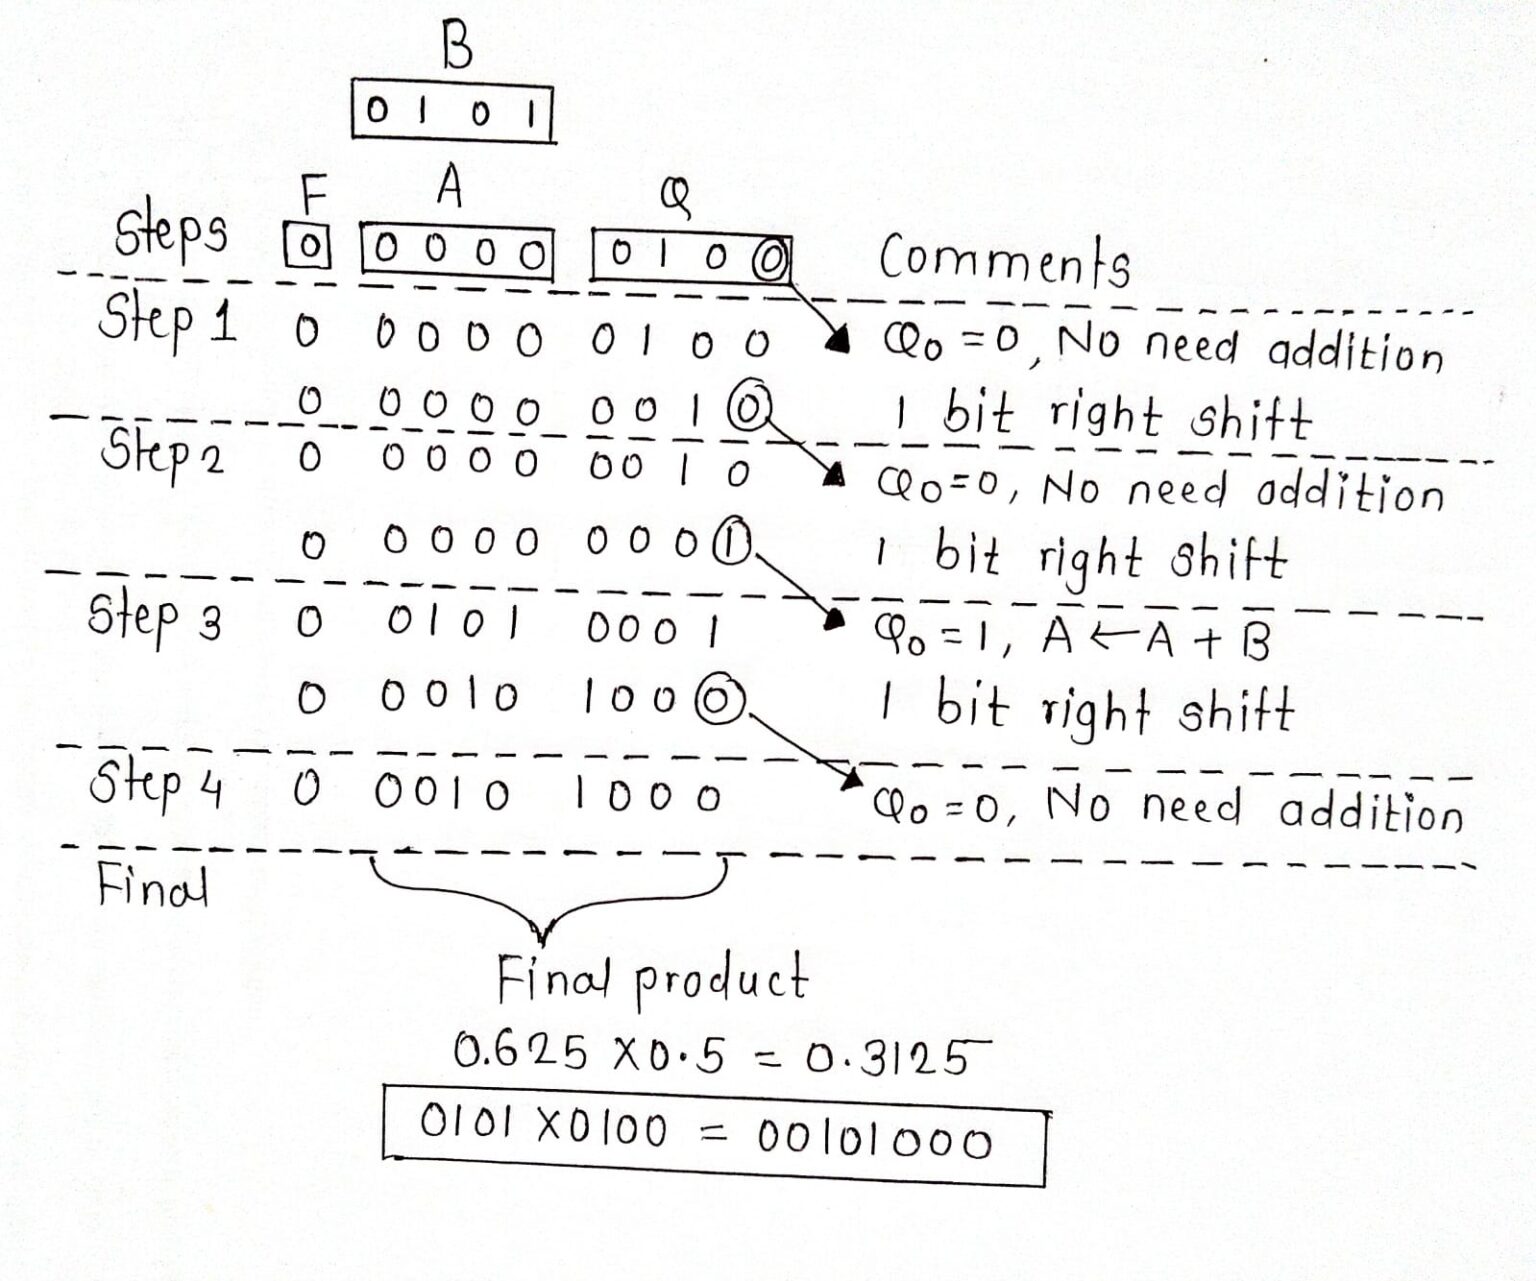 B
0 1 0 1
F A Q
Steps 0 0 0 0 0 0 1 0 0 Comments
Step 1 0 0 0 0 0 0 1 0 0 Q0 = 0, No need addition
0 0 0 0 0 0 0 1 0 1 bit right shift
Step 2 0 0 0 0 0 0 0 1 0 Q0 = 0, No need addition
0 0 0 0 0 0 0 0 1 1 bit right shift
Step 3 0 0 1 0 1 0 0 0 1 Q0 = 1, A ← A + B
0 0 0 1 0 1 0 0 0 1 bit right shift
Step 4 0 0 0 1 0 1 0 0 0 Q0 = 0, No need addition
Final
Final product
0.625 X 0.5 = 0.3125
0101 X 0100 = 00101000